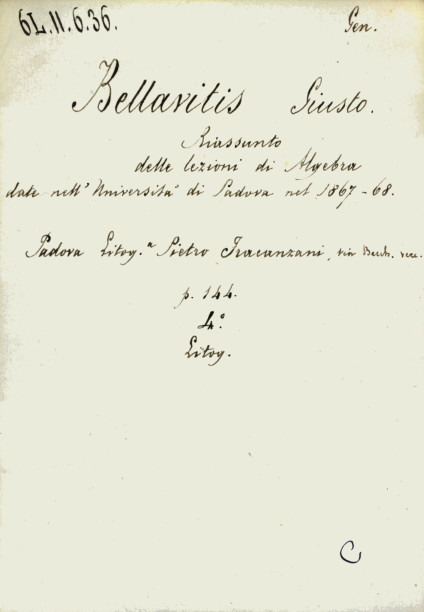 6L.II.6.36. Gen.
Bellavitis Giusto.
Riassunto
delle lezioni di Algebra
date nell' Università di Padova nel 1867-68.
Padova Litog.a Pietro Fracanzani, via
p. 144.
4.°
Litog.
C